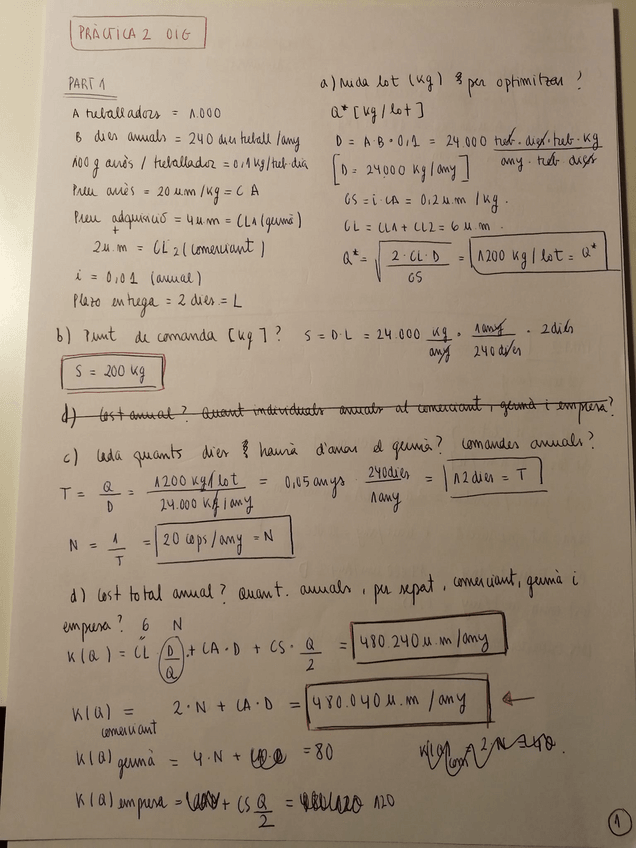 PRÀCTICA 2 OIG
PART 1
A treballadors = 1.000
B dies anuals = 240 dies treball / any
100 g arròs / treballador = 0,1 kg/treb·dia
Preu arròs = 20 u.m/kg = CA
Preu adquisició = 4 u.m = CL1 (germà)
+
2 u.m = CL2 (comerciant)
i = 0,01 (anual)
Plazo entrega = 2 dies = L
a) Mida lot (kg) per optimitzar?
Q* [kg/lot]
D = A·B·0,1 = 24.000 treb·dies·treb·kg / any·treb dies
[D = 24000 kg/any]
CS = i·CA = 0,2 u.m/kg.
CL = CL1 + CL2 = 6 u.m.
Q* = √(2·CL·D / CS) = 1200 kg/lot = Q*
b) Punt de comanda [kg]? S = D·L = 24.000 kg/any · 1any/240 dies · 2 dies
S = 200 kg
d) Cost anual? Quant individuals anuals al comerciant, germà i empresa?
c) Cada quants dies hauria d'anar el germà? comandes anuals?
T = Q/D = 1200 kg/lot / 24.000 kg/any = 0,05 anys · 240 dies / 1 any = 12 dies = T
N = 1/T = 20 cops/any = N
d) Cost total anual? Quant. anuals, per separat, comerciant, germà i
empresa? 6 N
K(Q) = CL D/Q + CA·D + CS·Q/2 = 480.240 u.m/any
K(Q) comerciant = 2·N + CA·D = 480.040 u.m/any ←
K(Q) germà = 4·N + = 80
K(Q) empresa = + CS Q/2 = 120
1